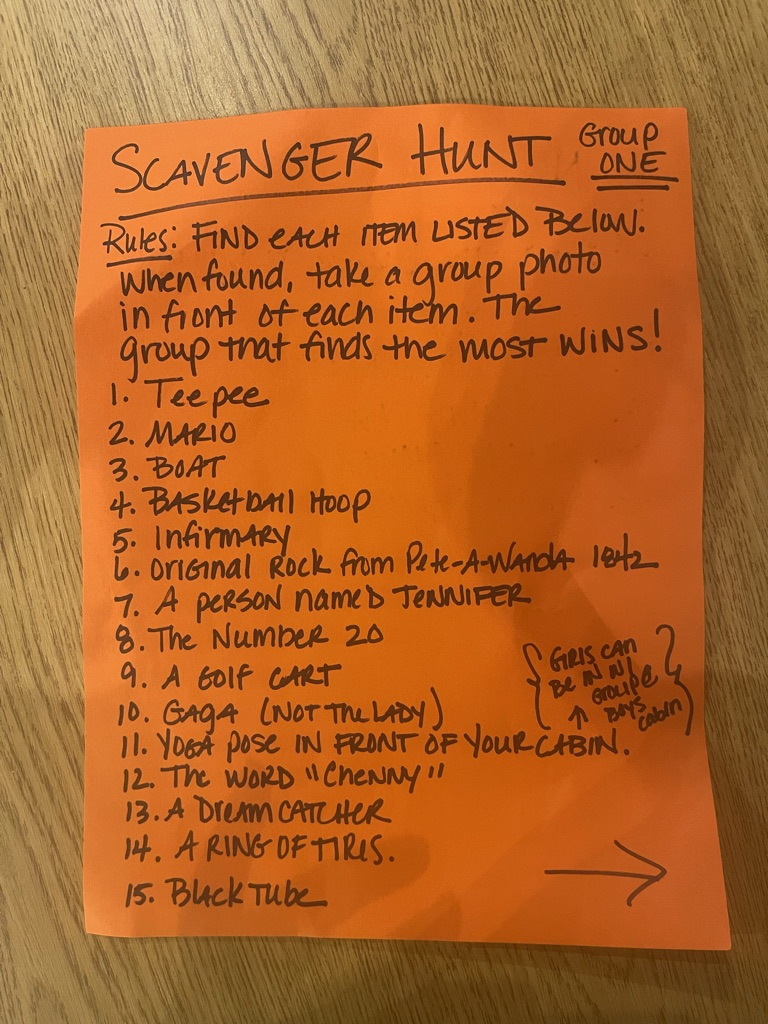 SCAVENGER HUNT
GROUP
ONE
Rules: FIND EACH ITEM LISTED BELOW.
When found, take a group photo
in front of each item. The
group that finds the most WINS!
1. Teepee
2. MARIO
3. BOAT
4. BASKETBALL HOOP
5. INFIRMARY
6. ORIGINAL ROCK from Pete-A-WANDA 1842
7. A person named JENNIFER
8. The NUMBER 20
9. A GOLF CART
10. GAGA (NOT THE LADY)
11. YOGA pose IN FRONT OF YOUR CABIN.
{GIRLS CAN
BE IN W/
GROUP @
↑ BOYS
cabin}
12. The WORD "CHENNY"
13. A DREAM CATCHER
14. A RING OF TIRES.
15. BLACK TUBE
→